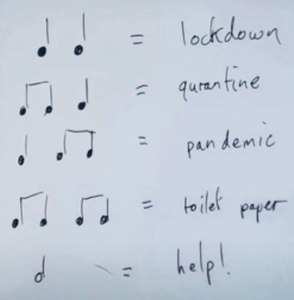 = lockdown
= qurantine
= pandemic
= toilet paper
= help!